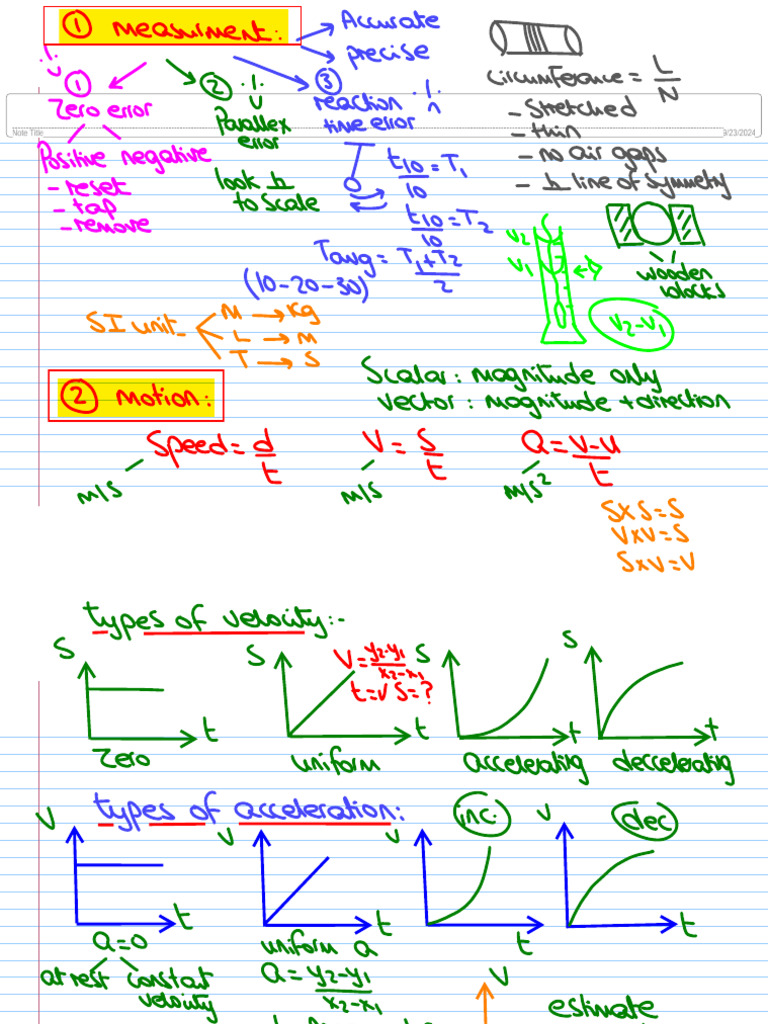 ① measurment:
Accurate
precise
① Zero error
Positive negative
- reset
- tap
- remove
② Parallex error
look ⊥ to scale
③ reaction time error
t10/10 = T1
t10/10 = T2
Tavg = T1+T2/2
(10-20-30)
circumference = L/N
- Stretched
- thin
- no air gaps
- ⊥ line of symmetry
Note Title
9/23/2024
V2
V1
V2-V1
wooden blocks
SI unit
M → Kg
L → M
T → S
② motion:
Scalar: magnitude only
vector: magnitude + direction
Speed = d/t
m/s
V = S/t
m/s
a = V-U/t
m/s²
S x S = S
V x V = S
S x V = V
types of velocity:-
S t Zero
S t uniform
V = y2-y1/x2-x1
t=✓ S=?
S t accelerating
S t deccelerating
types of acceleration:
V t a=0
at rest constat velocity
V t uniform a
a = y2-y1/x2-x1
V t inc.
V t dec
V
estimate